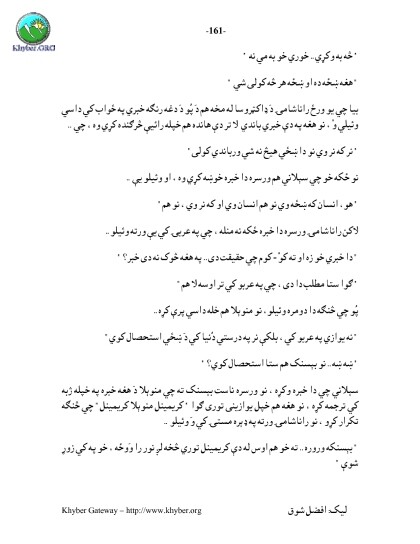 -161-
Khyber.ORG
" څه به وکړي.. خورې خو به مې نه "
" هغه ښځه ده او ښځه هر څه کولی شي "
بيا چې يو ورځ راناشامۍ دَ ډاکټر وسا له مخه هم دَ پُو دَ دغه رنګه خبرې په ځواب کې داسې
وئيلي وُ ، نو هغه په دې خبرې باندې لا تر دې هانده هم خپله رائيې څرګنده کړې وه ، چې ..
" نر که نر وي نو دا ښځې هيڅ نه شي ورباندې کولی "
نو ځکه خو چې سېلاني هم ورسره دا خبره خوښه کړې وه ، او وئيلو يې ..
" هو ، انسان که ښځه وي نو هم انسان وي او که نر وي ، نو هم "
لاکن راناشامۍ ورسره دا خبره ځکه نه منله ، چې په عربۍ کې يې ورته وئيلو ..
" دا خبرې خو زه او ته کوُ - کوم چې حقيقت دی.. په هغه څوک نه دی خبر ؟ "
" ګوا ستا مطلب دا دی ، چې په عربو کې تر اوسه لا هم "
پُو چې څنګه دا دومره وئيلو ، نو منوبلا هم خله داسې پرې کړه..
" نه يوازې په عربو کې ، بلکې نر په درستې دُنيا کې دَ ښځې استحصال کوي "
" ښه ښه.. نو بېسنک هم ستا استحصال کوي ؟ "
سېلاني چې دا خبره وکړه ، نو ورسره ناست بېسنک ته چې منوبلا دَ هغه خبره په خپله ژبه
کې ترجمه کړه ، نو هغه هم خپل يوازينی توری ګوا " کريمينل منوبلا کريمينل " چې څنګه
تکرار کړو ، نو راناشامۍ ورته په ډېره مستۍ کې وَ وئيلو ..
" بېسنکه وروره.. ته خو هم اوس له دې کريمينل توري څخه لږ نور را وَوځه ، خو په کې زوړ
شوې "
Khyber Gateway – http://www.khyber.org
ليک: افضل شوق